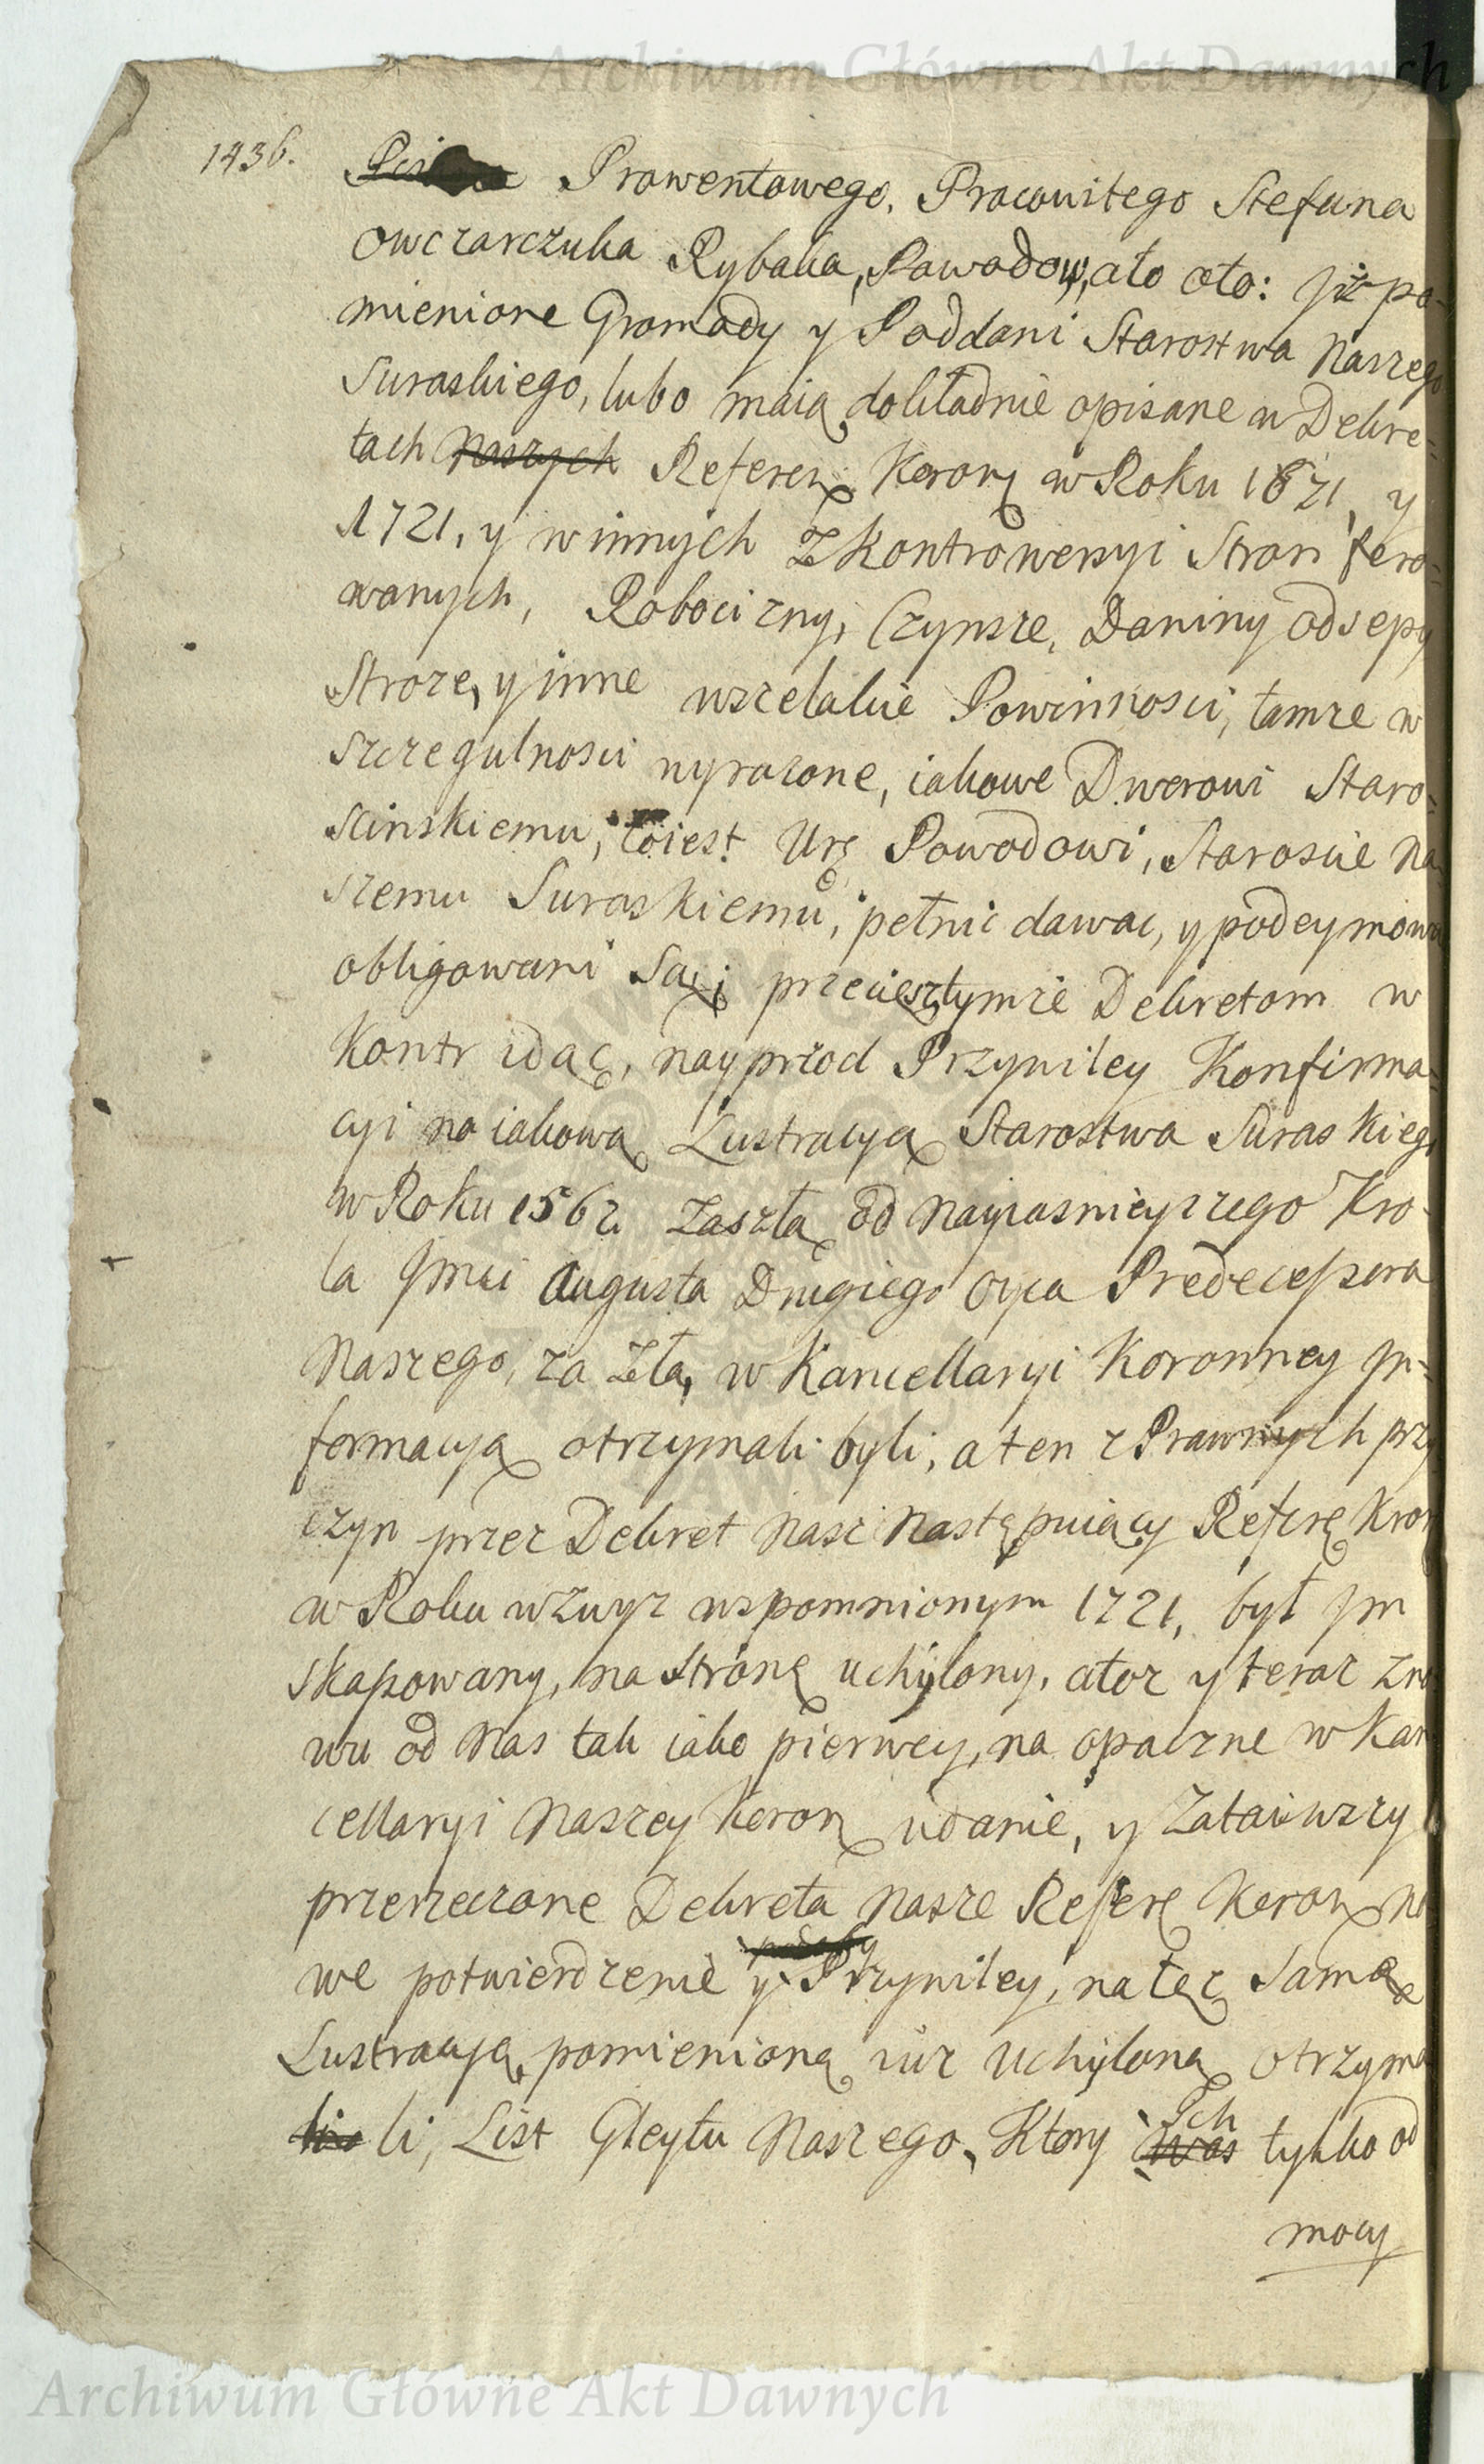 Archiwum Główne Akt Dawnych
1436.
Prowentowego, Pracowitego Stefana
Owczarczuka Rybaka, Powodow, ato oto: Jż po-
mienione Gromady y Poddani Starostwa Naszego
Suraskiego, lubo maią dokładnie opisane w Dekre-
tach Naszych Referen Koron w Roku 1671, y
1721, y w innych z Kontrowersyi Stron fero-
wanych, Robocizny, Czynsze, Daniny odsepy
Stroże, y inne wszelakie Powinnosci, tamże w
szczegulnosci wyrażone, iakowe Dworowi Staro-
scinskiemu, toiest Urę Powodowi, Staroscie Na
szemu Suraskiemu, pełnic dawac, y podeymowa
obligowani są; przeciesz tymże Dekretom w
Kontr idąc, nayprzod Przywiley Konfirma-
cyi na iakową Lustracyą Starostwa Suraskiego
w Roku 1562 zaszłą od Nayiasnieyszego Kro-
la Jmci Augusta Drugiego Oyca Predecessora
Naszego, za złą, w Kancellaryi Koronney Jn-
formacyą otrzymali byli, a ten z Prawnych przy
czyn przez Dekret Nasz Następuiący Referę Kron
w Roku wzwyz wspomnionym 1721, był Jm
skassowany, na stronę uchylony, atoz y teraz zno
wu od Nas tak iako pierwey, na opaczne w Kan
cellaryi Naszey Koron udanie, y zataiwszy
przerzeczone Dekreta Nasze Referę Koron No
we potwierdzenie y Przywiley, na tęż samą
Lustracyą, pomienioną iuż uchyloną otrzyma
li, List Gleytu Naszego, Ktory Jch tylko od
mocy
Archiwum Główne Akt Dawnych